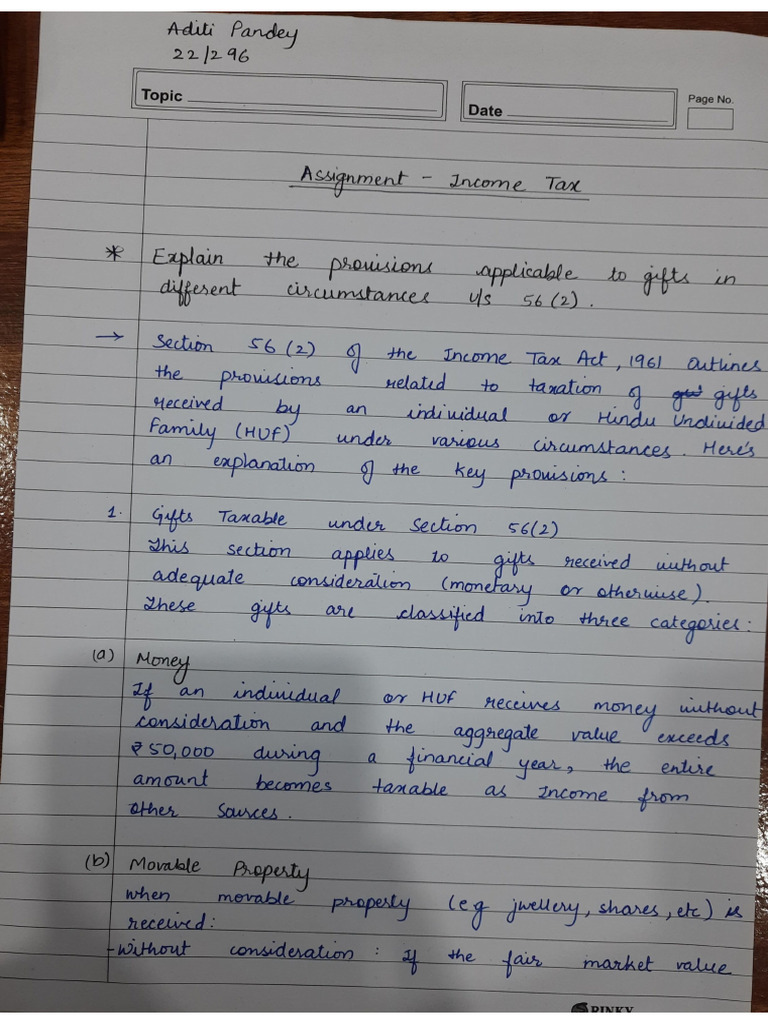 Aditi Pandey
22/296
Topic
Date
Page No.
Assignment - Income Tax
* Explain the provisions applicable to gifts in
different circumstances u/s 56(2).
→ Section 56(2) of the Income Tax Act, 1961 outlines
the provisions related to taxation of gifts
received by an individual or Hindu Undivided
Family (HUF) under various circumstances. Here's
an explanation of the key provisions :
1. Gifts Taxable under Section 56(2)
This section applies to gifts received without
adequate consideration (monetary or otherwise).
These gifts are classified into three categories:
(a) Money
If an individual or HUF receives money without
consideration and the aggregate value exceeds
₹50,000 during a financial year, the entire
amount becomes taxable as Income from
Other Sources.
(b) Movable Property
when movable property (eg jwellery, shares, etc) is
received:
-Without consideration : If the fair market value
PINKY